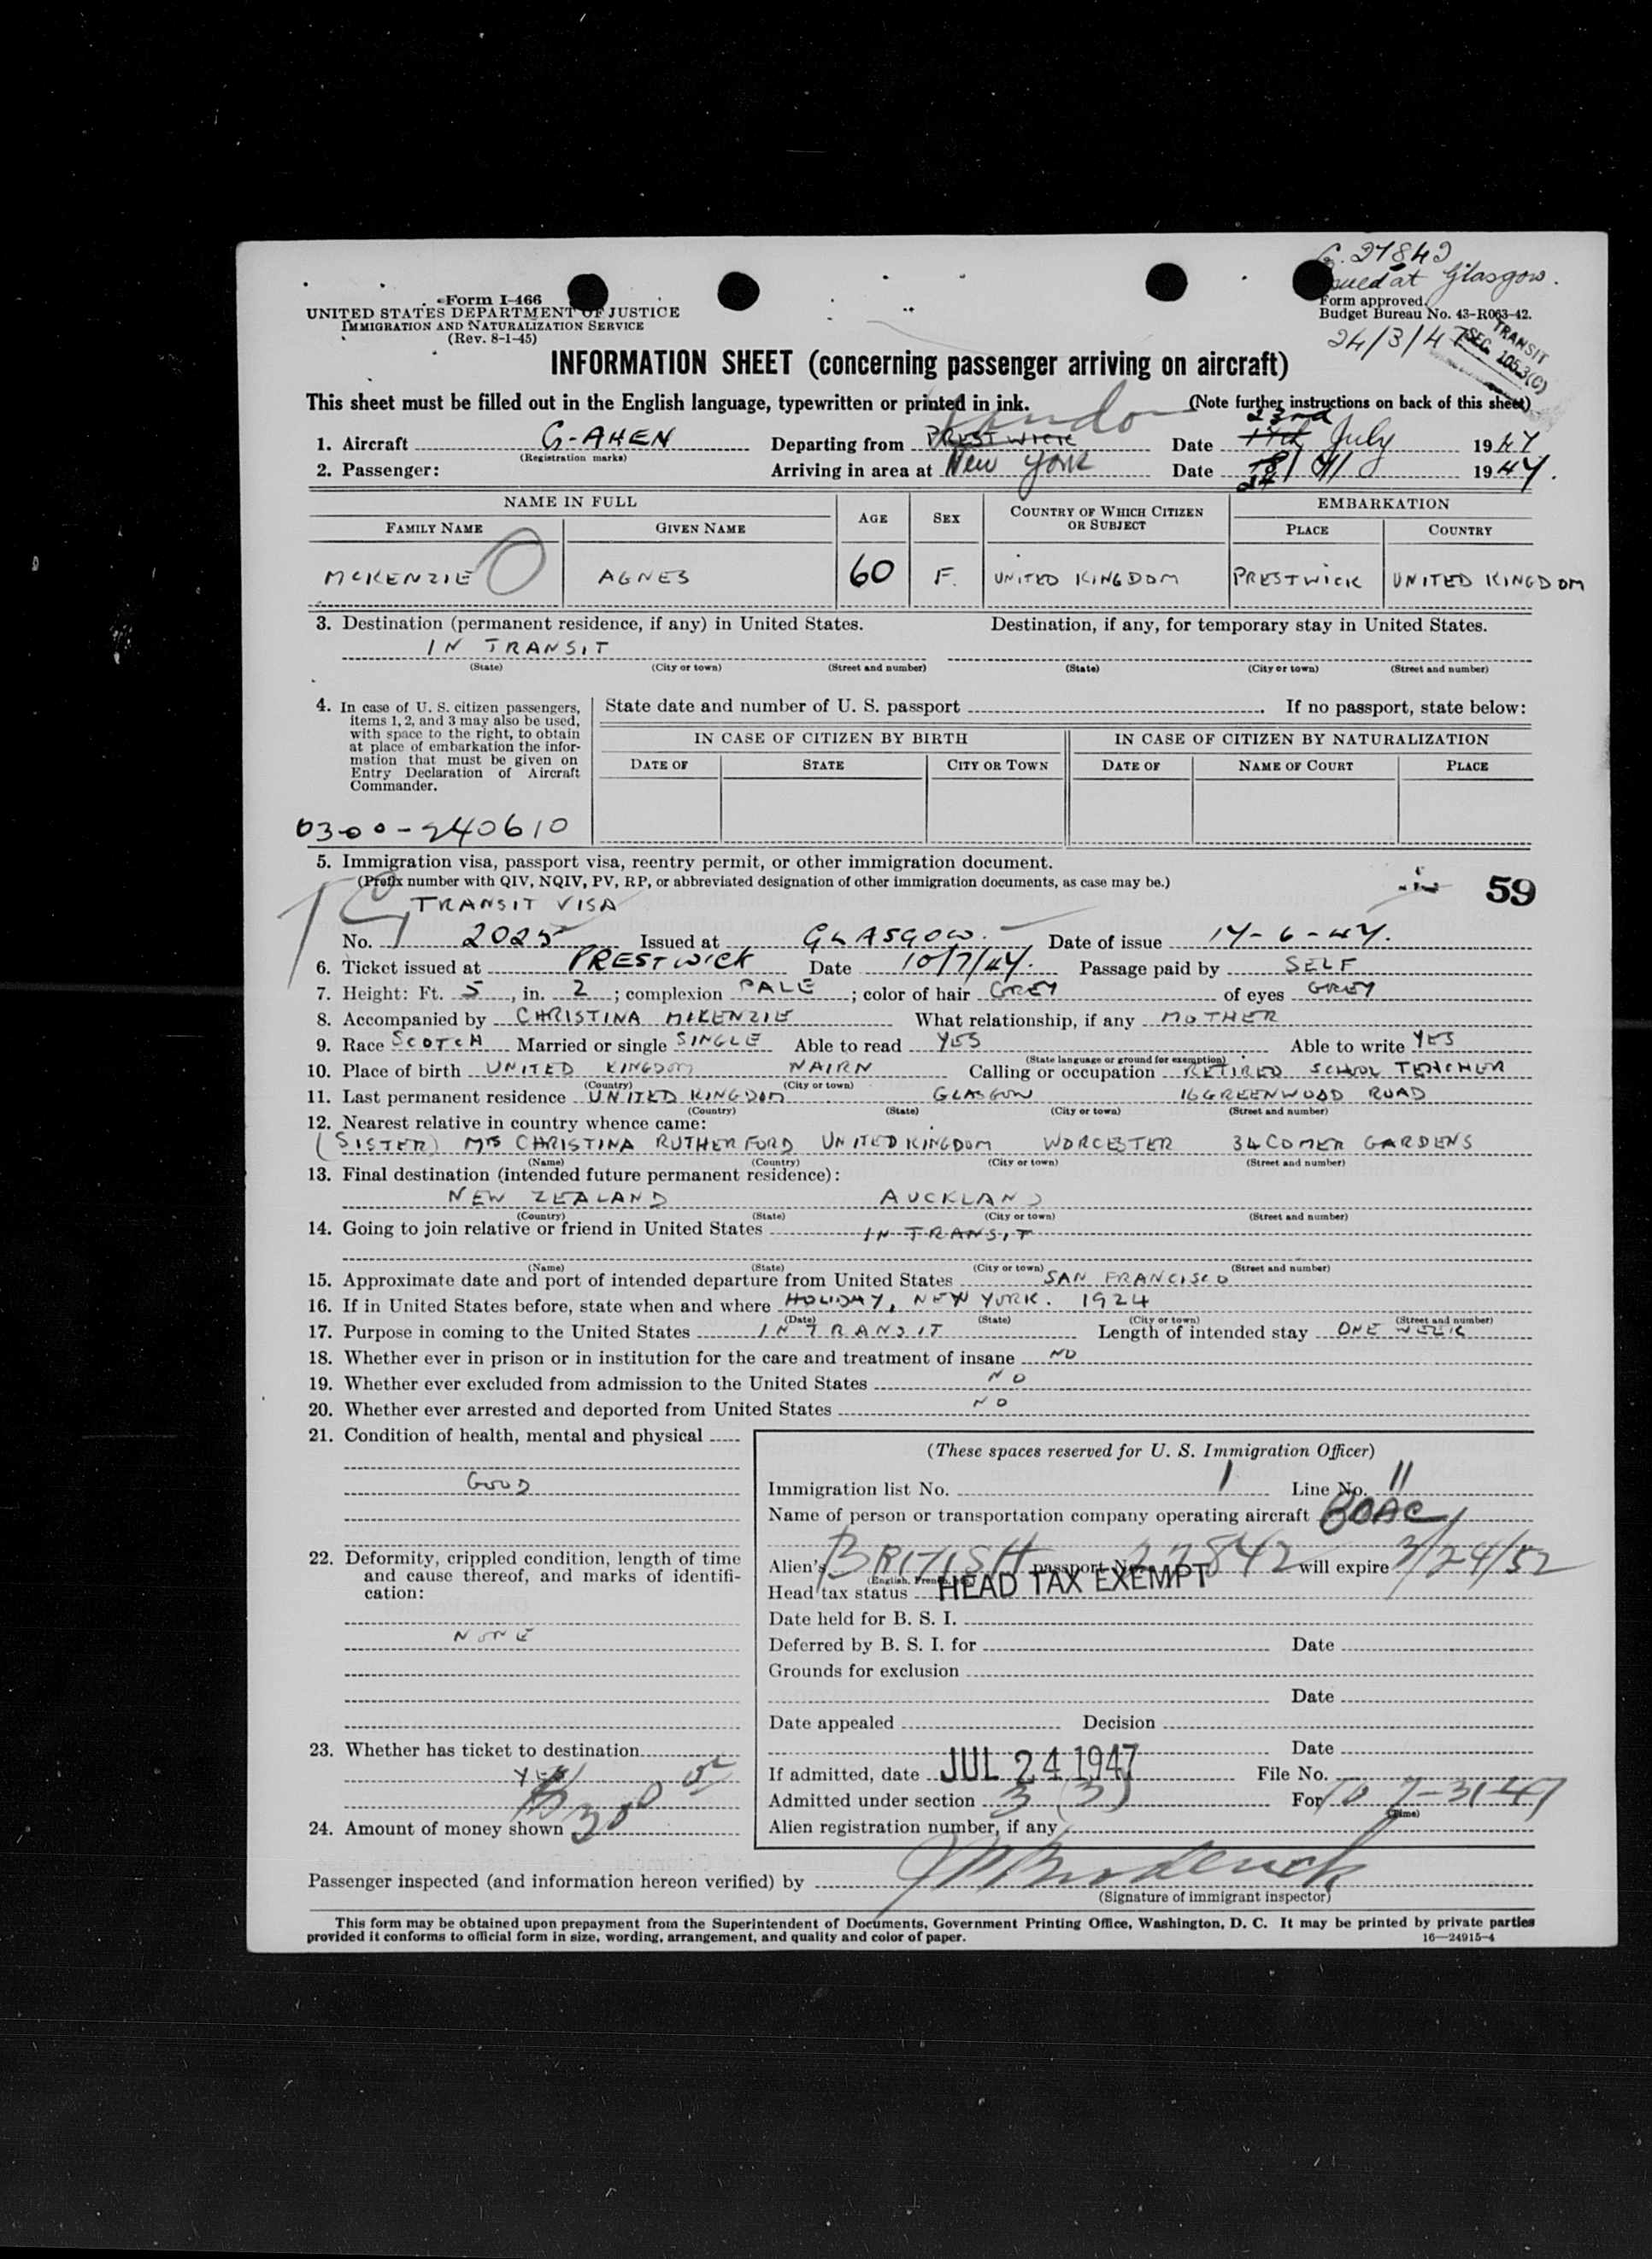 G. 27842
Issued at Glasgow.
24/3/47
TRANSIT
SEC. 1053(C)
Form I-466
UNITED STATES DEPARTMENT OF JUSTICE
IMMIGRATION AND NATURALIZATION SERVICE
(Rev. 8-1-45)
Form approved.
Budget Bureau No. 43-R063-42.
INFORMATION SHEET (concerning passenger arriving on aircraft)
This sheet must be filled out in the English language, typewritten or printed in ink. (Note further instructions on back of this sheet)
London 23rd
1. Aircraft G-AHEN Departing from PRESTWICK Date 17th July 1947
(Registration marks)
2. Passenger: Arriving in area at New York Date 24 1947.
NAME IN FULL AGE SEX COUNTRY OF WHICH CITIZEN OR SUBJECT EMBARKATION
FAMILY NAME GIVEN NAME PLACE COUNTRY
MCKENZIE AGNES 60 F. UNITED KINGDOM PRESTWICK UNITED KINGDOM
3. Destination (permanent residence, if any) in United States. Destination, if any, for temporary stay in United States.
IN TRANSIT
(State) (City or town) (Street and number) (State) (City or town) (Street and number)
4. In case of U. S. citizen passengers,
items 1, 2, and 3 may also be used,
with space to the right, to obtain
at place of embarkation the infor-
mation that must be given on
Entry Declaration of Aircraft
Commander.
State date and number of U. S. passport If no passport, state below:
IN CASE OF CITIZEN BY BIRTH IN CASE OF CITIZEN BY NATURALIZATION
DATE OF STATE CITY OR TOWN DATE OF NAME OF COURT PLACE
0300-240610
5. Immigration visa, passport visa, reentry permit, or other immigration document.
(Prefix number with QIV, NQIV, PV, RP, or abbreviated designation of other immigration documents, as case may be.)
59
TRANSIT VISA
No. 2025 Issued at GLASGOW. Date of issue 17-6-47.
6. Ticket issued at PRESTWICK Date 10/7/47. Passage paid by SELF
7. Height: Ft. 5, in. 2; complexion PALE; color of hair GREY of eyes GREY
8. Accompanied by CHRISTINA MCKENZIE What relationship, if any MOTHER
9. Race SCOTCH Married or single SINGLE Able to read YES Able to write YES
(State language or ground for exemption)
10. Place of birth UNITED KINGDOM NAIRN Calling or occupation RETIRED SCHOOL TEACHER
(Country) (City or town)
11. Last permanent residence UNITED KINGDOM GLASGOW 16 GREENWOOD ROAD
(Country) (State) (City or town) (Street and number)
12. Nearest relative in country whence came:
(SISTER) MRS CHRISTINA RUTHERFORD UNITED KINGDOM WORCESTER 34 COMER GARDENS
(Name) (Country) (City or town) (Street and number)
13. Final destination (intended future permanent residence):
NEW ZEALAND AUCKLAND
(Country) (State) (City or town) (Street and number)
14. Going to join relative or friend in United States IN TRANSIT
(Name) (State) (City or town) (Street and number)
15. Approximate date and port of intended departure from United States SAN FRANCISCO
16. If in United States before, state when and where HOLIDAY, NEW YORK. 1924
(Date) (State) (City or town) (Street and number)
17. Purpose in coming to the United States IN TRANSIT Length of intended stay ONE WEEK
18. Whether ever in prison or in institution for the care and treatment of insane NO
19. Whether ever excluded from admission to the United States NO
20. Whether ever arrested and deported from United States NO
21. Condition of health, mental and physical
GOOD
22. Deformity, crippled condition, length of time
and cause thereof, and marks of identifi-
cation:
NONE
23. Whether has ticket to destination
YES
24. Amount of money shown 300
(These spaces reserved for U. S. Immigration Officer)
Immigration list No. 1 Line No. 11
Name of person or transportation company operating aircraft BOAC
Alien's BRITISH passport No. 27842 will expire 3/24/52
Head tax status HEAD TAX EXEMPT
Date held for B. S. I.
Deferred by B. S. I. for Date
Grounds for exclusion
Date
Date appealed Decision
Date
If admitted, date JUL 24 1947 File No.
Admitted under section 3 (3) For TO 7-31-47
(Time)
Alien registration number, if any
Passenger inspected (and information hereon verified) by
(Signature of immigrant inspector)
This form may be obtained upon prepayment from the Superintendent of Documents, Government Printing Office, Washington, D. C. It may be printed by private parties
provided it conforms to official form in size, wording, arrangement, and quality and color of paper. 16—24915-4